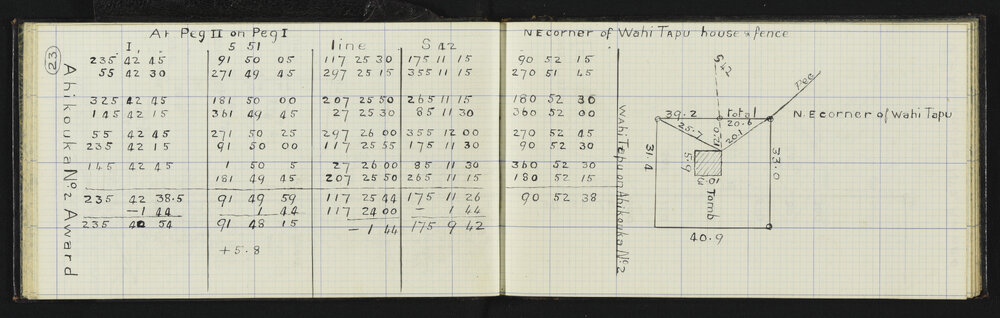 23
Ahikouka No. 2 Award
At Peg II on Peg I
I, S 51 line S 42
235 42 45 91 50 05 117 25 30 175 11 15
55 42 30 271 49 45 297 25 15 355 11 15
325 42 45 181 50 00 207 25 50 265 11 15
145 42 15 361 49 45 27 25 30 85 11 30
55 42 45 271 50 25 297 26 00 355 12 00
235 42 15 91 50 00 117 25 55 175 11 30
145 42 45 1 50 5 27 26 00 85 11 30
181 49 45 207 25 50 265 11 15
235 42 38.5 91 49 59 117 25 44 175 11 26
-1 44 1 44 117 24 00 - 1 44
235 40 54 91 48 15 -1 44 175 9 42
+5.8
NE corner of Wahi Tapu house & fence
90 52 15
270 51 45
180 52 30
360 52 00
270 52 45
90 52 30
360 52 30
180 52 15
90 52 38
Wahi Tapu on Ahikouka No. 2
S 42
Pec
39.2 total
20.6
N.E corner of Wahi Tapu
25.7
20.1
31.4
5.9
10.3
Tomb
33.0
40.9